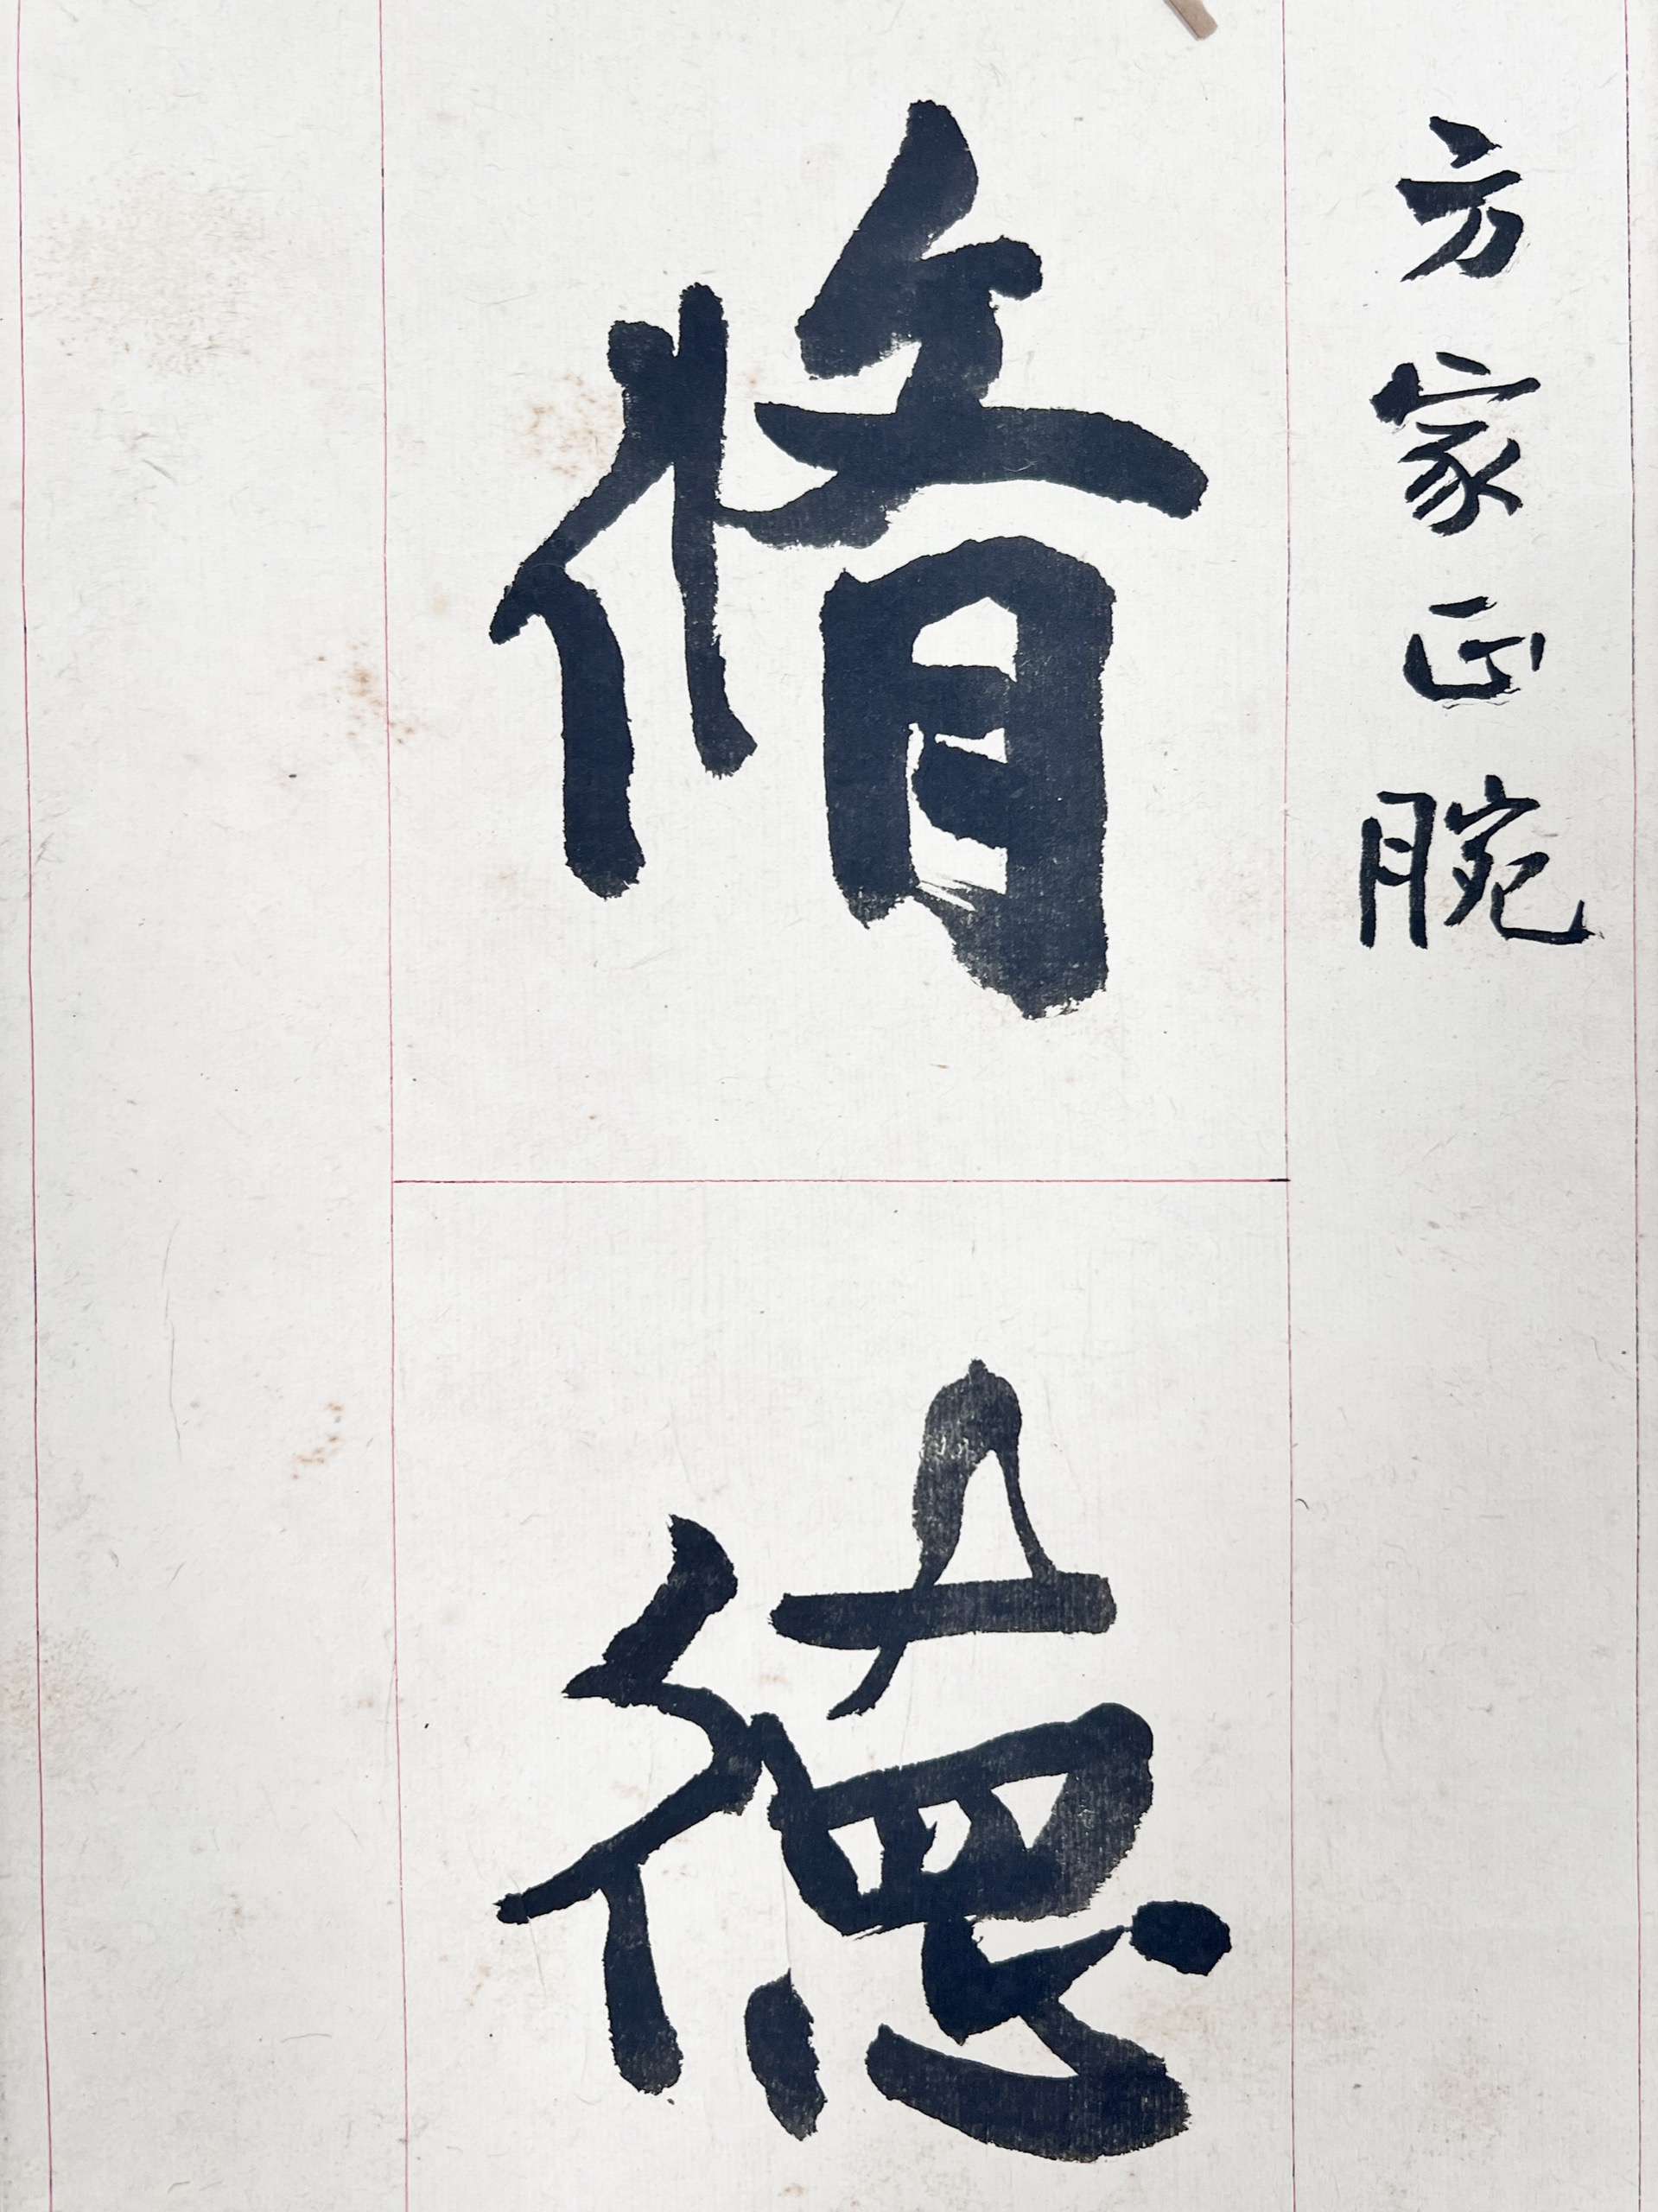 方家正腕
脩德